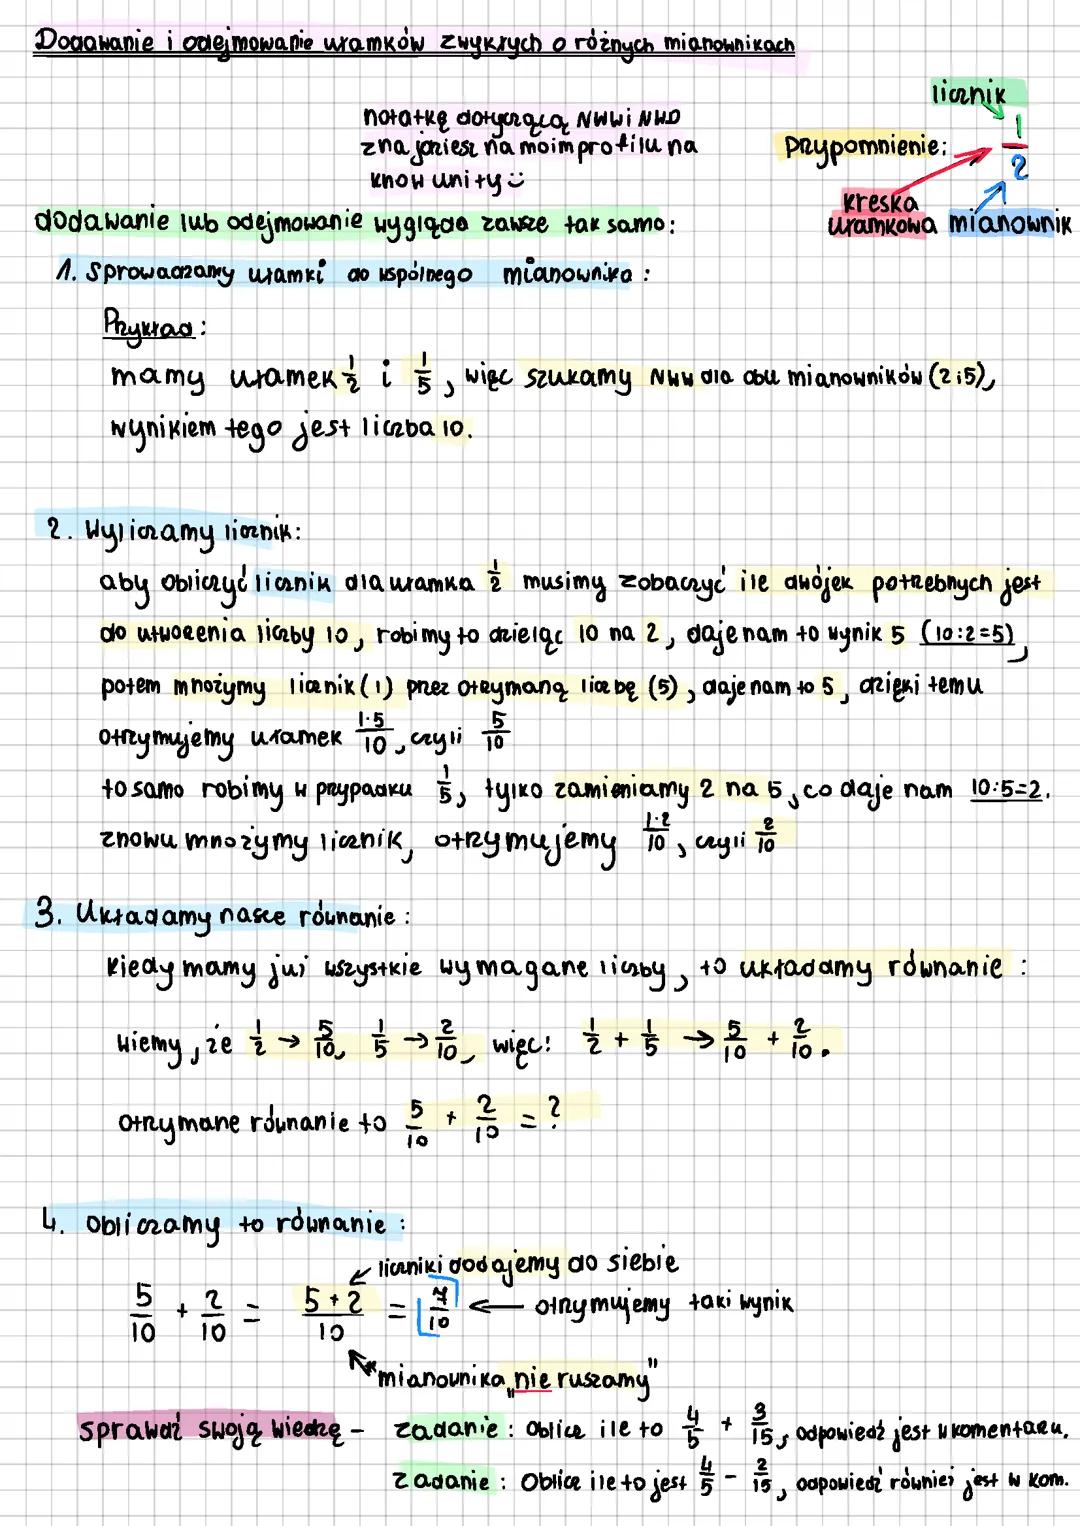 Dodawanie i odejmowanie ułamków zwykłych o różnych mianownikach
licznik
notatkę dotyczącą NWW i NWD
znajdziesz na moim profilu na
know unity :)
Przypomnienie:
1/2
kreska
ułamkowa
mianownik
dodawanie lub odejmowanie wygląda zawsze tak samo:
1. Sprowadzamy ułamki do wspólnego mianownika:
Przykład:
mamy ułamek 1/2 i 1/5, więc szukamy NWW dla obu mianowników (2 i 5),
wynikiem tego jest liczba 10.
2. Wyliczamy licznik:
aby obliczyć licznik dla ułamka 1/2 musimy zobaczyć ile dwójek potrzebnych jest
do utworzenia liczby 10, robimy to dzieląc 10 na 2, daje nam to wynik 5 (10:2=5),
potem mnożymy licznik (1) przez otrzymaną liczbę (5), daje nam to 5, dzięki temu
otrzymujemy ułamek 1·5/10, czyli 5/10
to samo robimy w przypadku 1/5, tylko zamieniamy 2 na 5, co daje nam 10:5=2.
znowu mnożymy licznik, otrzymujemy 1·2/10, czyli 2/10
3. Układamy nasze równanie:
kiedy mamy już wszystkie wymagane liczby, to układamy równanie:
wiemy, że 1/2 → 5/10, 1/5 → 2/10, więc: 1/2 + 1/5 → 5/10 + 2/10.
otrzymane równanie to 5/10 + 2/10 = ?
4. Obliczamy to równanie:
liczniki dodajemy do siebie
5/10 + 2/10 = 5+2/10 = 7/10 ← otrzymujemy taki wynik
mianownika „nie ruszamy"
sprawdź swoją wiedzę - zadanie: Oblicz ile to 4/5 + 3/15, odpowiedź jest w komentarzu.
zadanie: Oblicz ile to jest 4/5 - 2/15, odpowiedź również jest w kom.